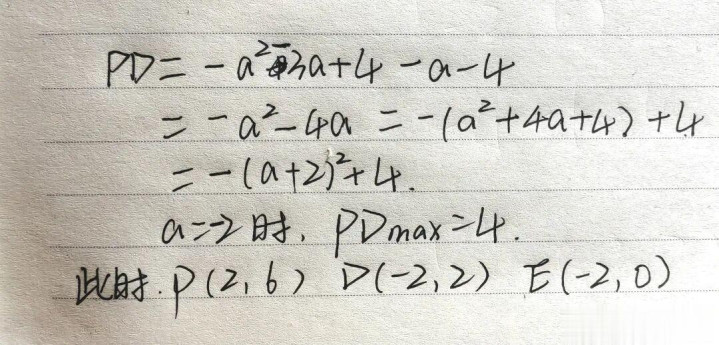 PD = -a²-3a+4-a-4
= -a²-4a = -(a²+4a+4)+4
= -(a+2)²+4.
a=-2时, PDmax=4.
此时. P(2,6) D(-2,2) E(-2,0)